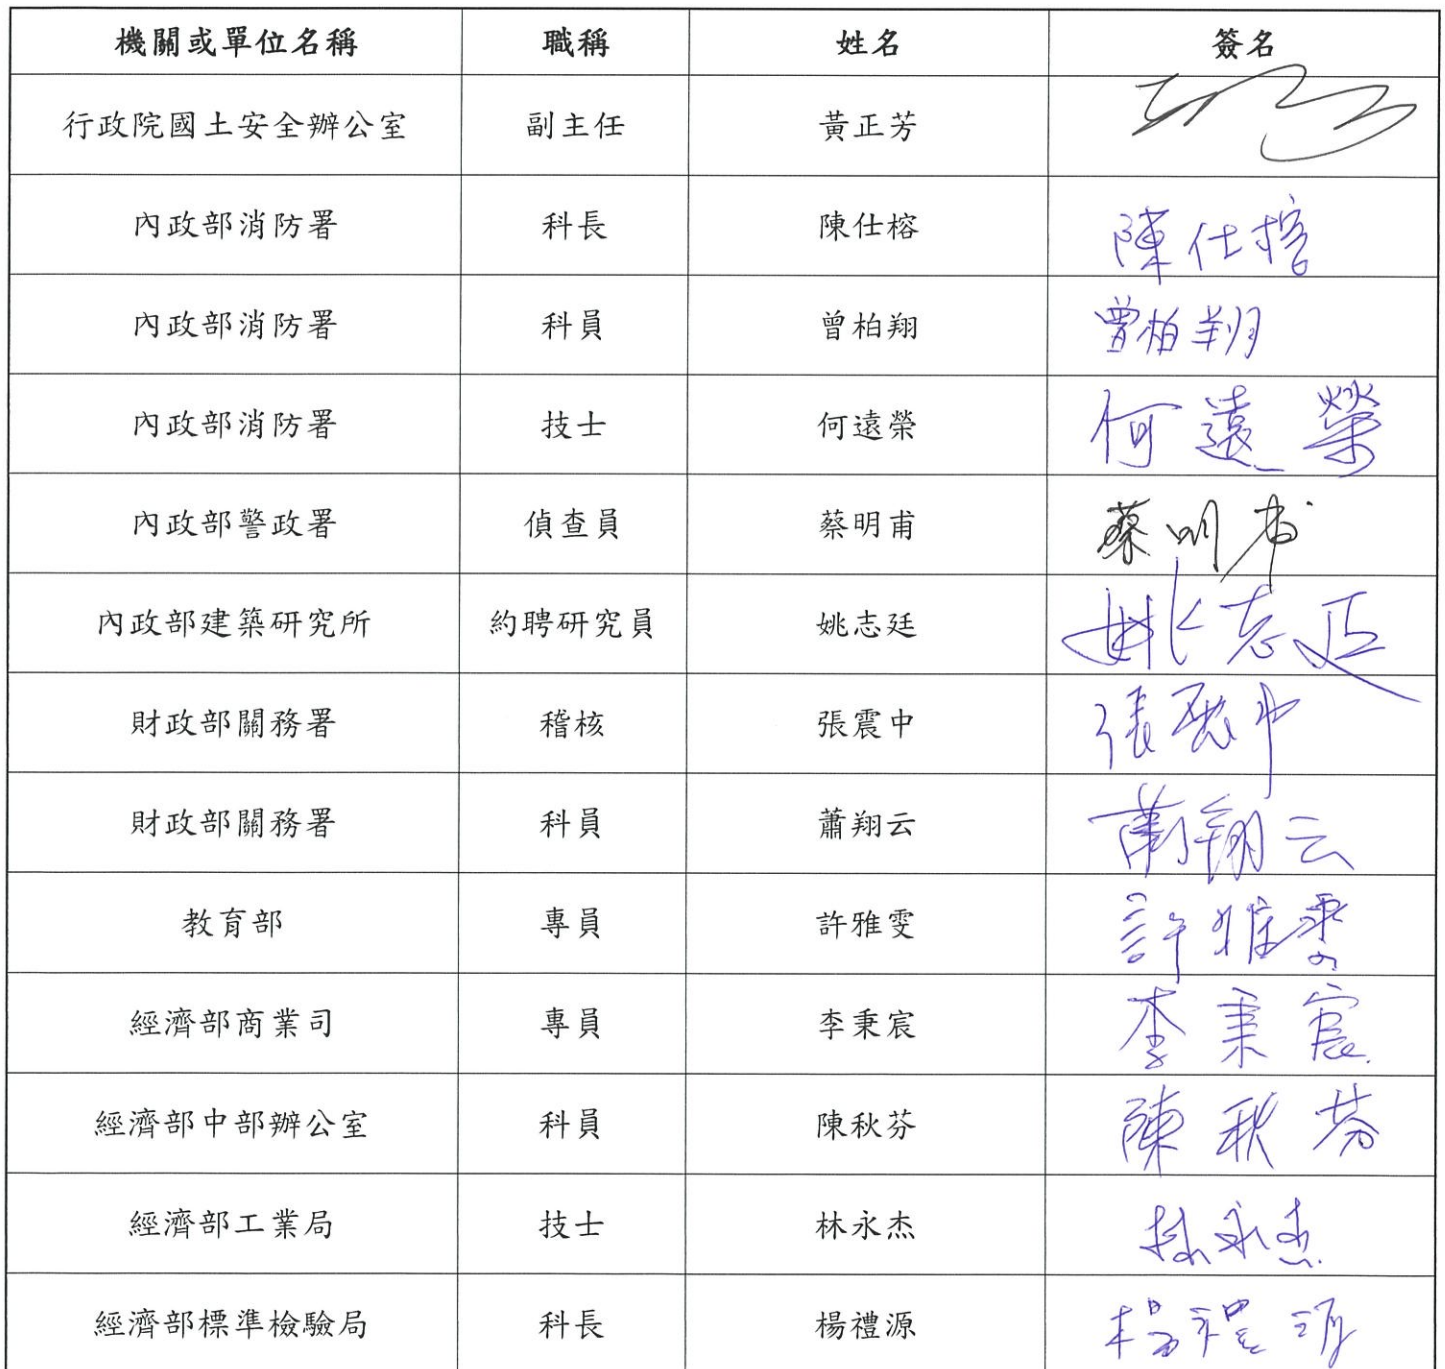 機關或單位名稱 職稱 姓名 簽名
行政院國土安全辦公室 副主任 黃正芳
內政部消防署 科長 陳仕榕 陳仕榕
內政部消防署 科員 曾柏翔 曾柏翔
內政部消防署 技士 何遠榮 何遠榮
內政部警政署 偵查員 蔡明甫 蔡明甫
內政部建築研究所 約聘研究員 姚志廷 姚志廷
財政部關務署 稽核 張震中 張震中
財政部關務署 科員 蕭翔云 蕭翔云
教育部 專員 許雅雯 許雅雯
經濟部商業司 專員 李秉宸 李秉宸
經濟部中部辦公室 科員 陳秋芬 陳秋芬
經濟部工業局 技士 林永杰 林永杰
經濟部標準檢驗局 科長 楊禮源 楊禮源